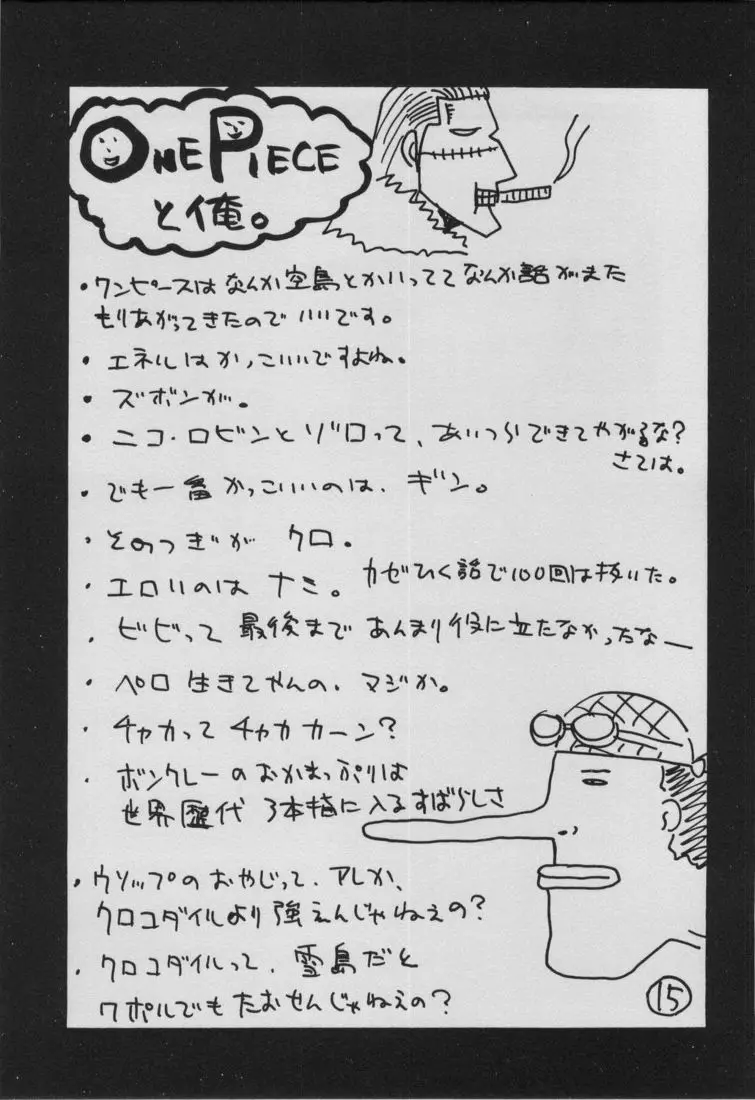 ONE PIECE
と俺。
・ワンピースはなんか空島とかいっててなんか話がまた
もりあがってきたのでいいです。
・エネルはかっこいいですよね。
・ズボンが。
・ニコ・ロビンとゾロって、あいつらできてやがるな?
さては。
・でも一番かっこいいのは、ギン。
・そのつぎがクロ。
・エロいのはナミ。カゼひく話で100回は抜いた。
・ビビって最後まであんまり役に立たなかったなー
・ペロ生きてやんの、マジか。
・チャカってチャカカーン?
・ボンクレーのおかまっぷりは
世界歴代3本指に入るすばらしさ
・ウソップのおやじって、アレか、
クロコダイルより強えんじゃねえの?
・クロコダイルって、雪島だと
ワポルでもたおせんじゃねえの?
15